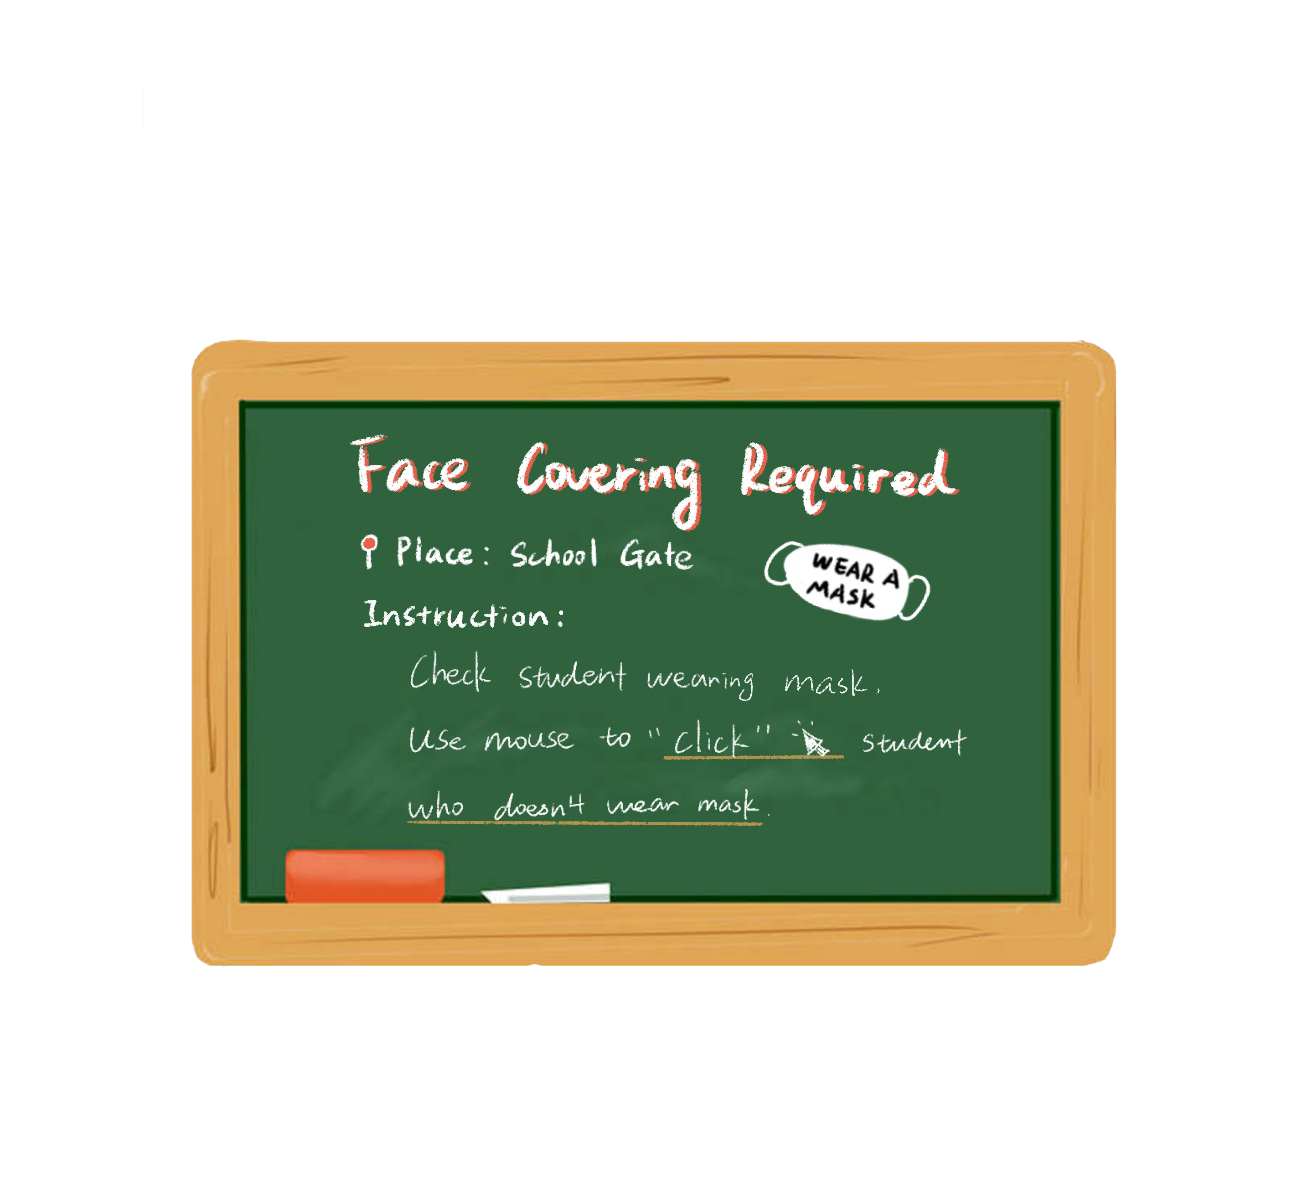 Face Covering Required
Place: School Gate
WEAR A
MASK
Instruction:
Check student wearing mask.
Use mouse to "click" student
who doesn't wear mask.